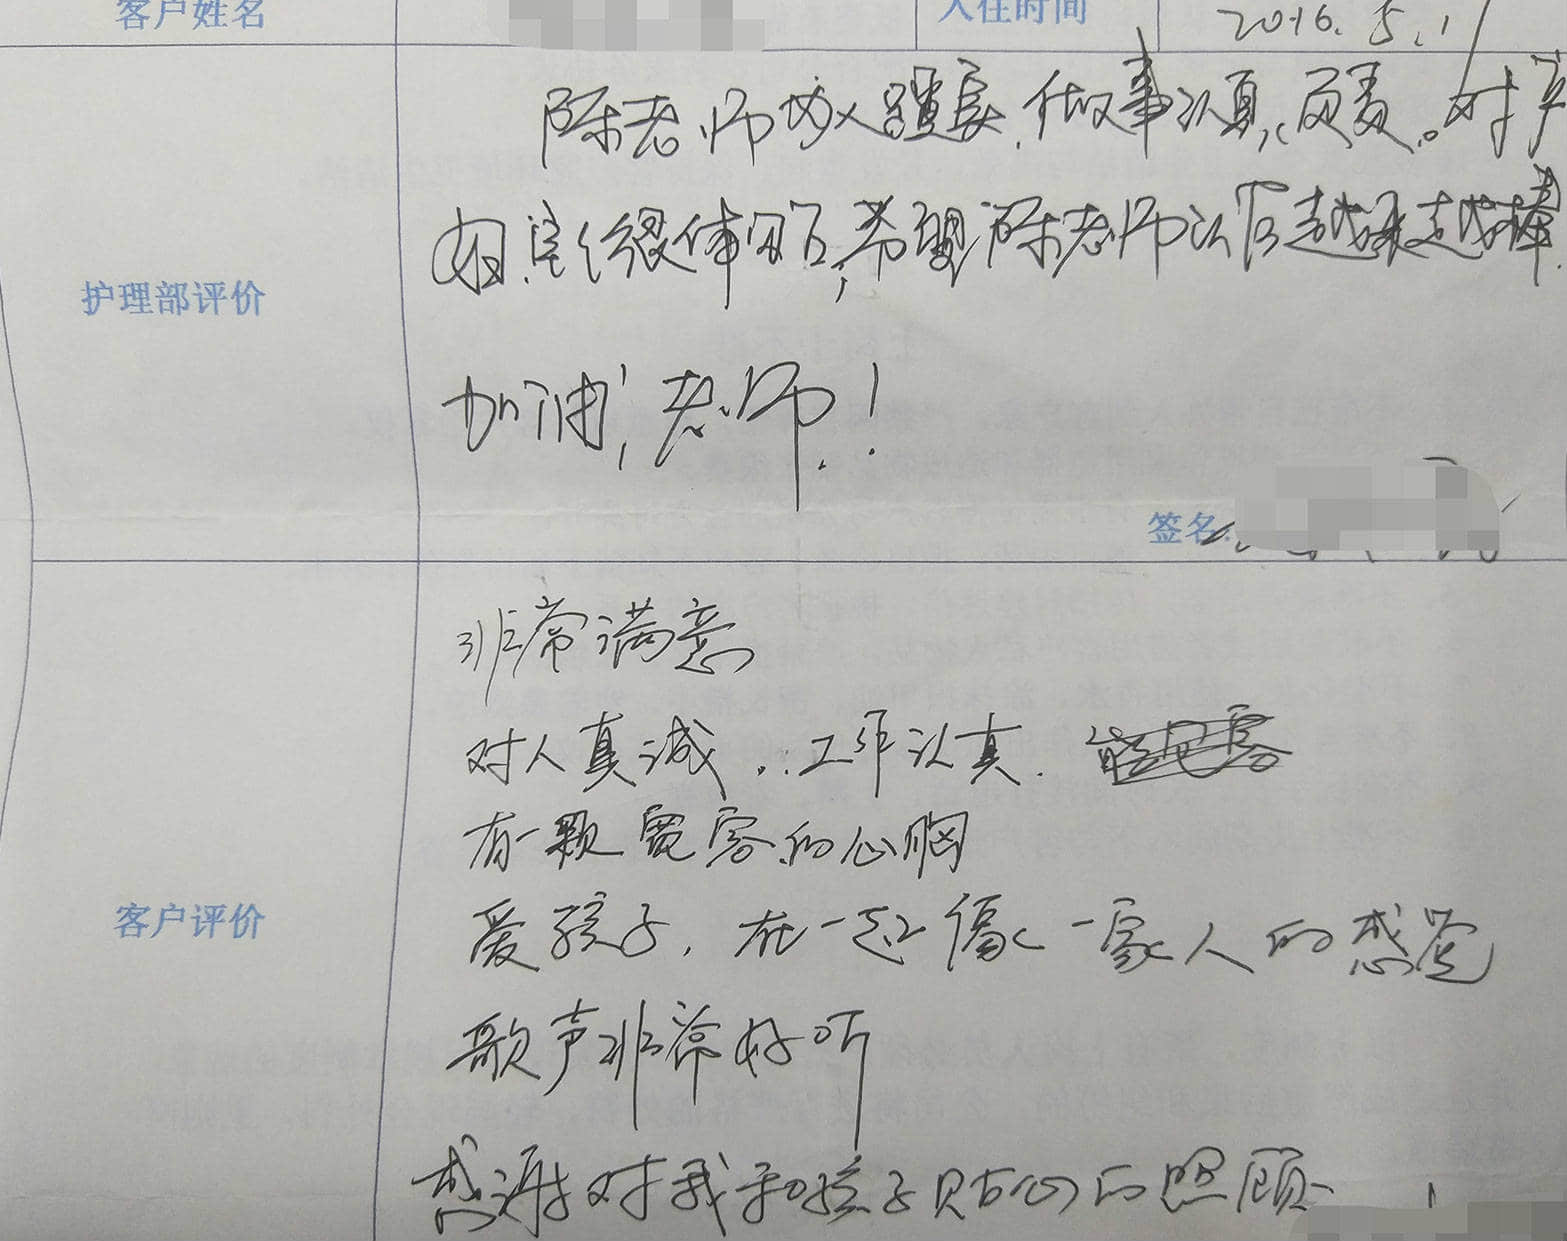 客户姓名 入住时间 2016.5.1
陈老师做人踏实,做事认真,负责。对产
护理部评价
妇宝宝很体贴,希望陈老师以后越来越棒.
加油,老师!
签名:
非常满意
对人真诚,工作认真.
有一颗宽容的心胸
客户评价
爱孩子,在一起像一家人的感觉
歌声非常好听
感谢对我和孩子贴心的照顾